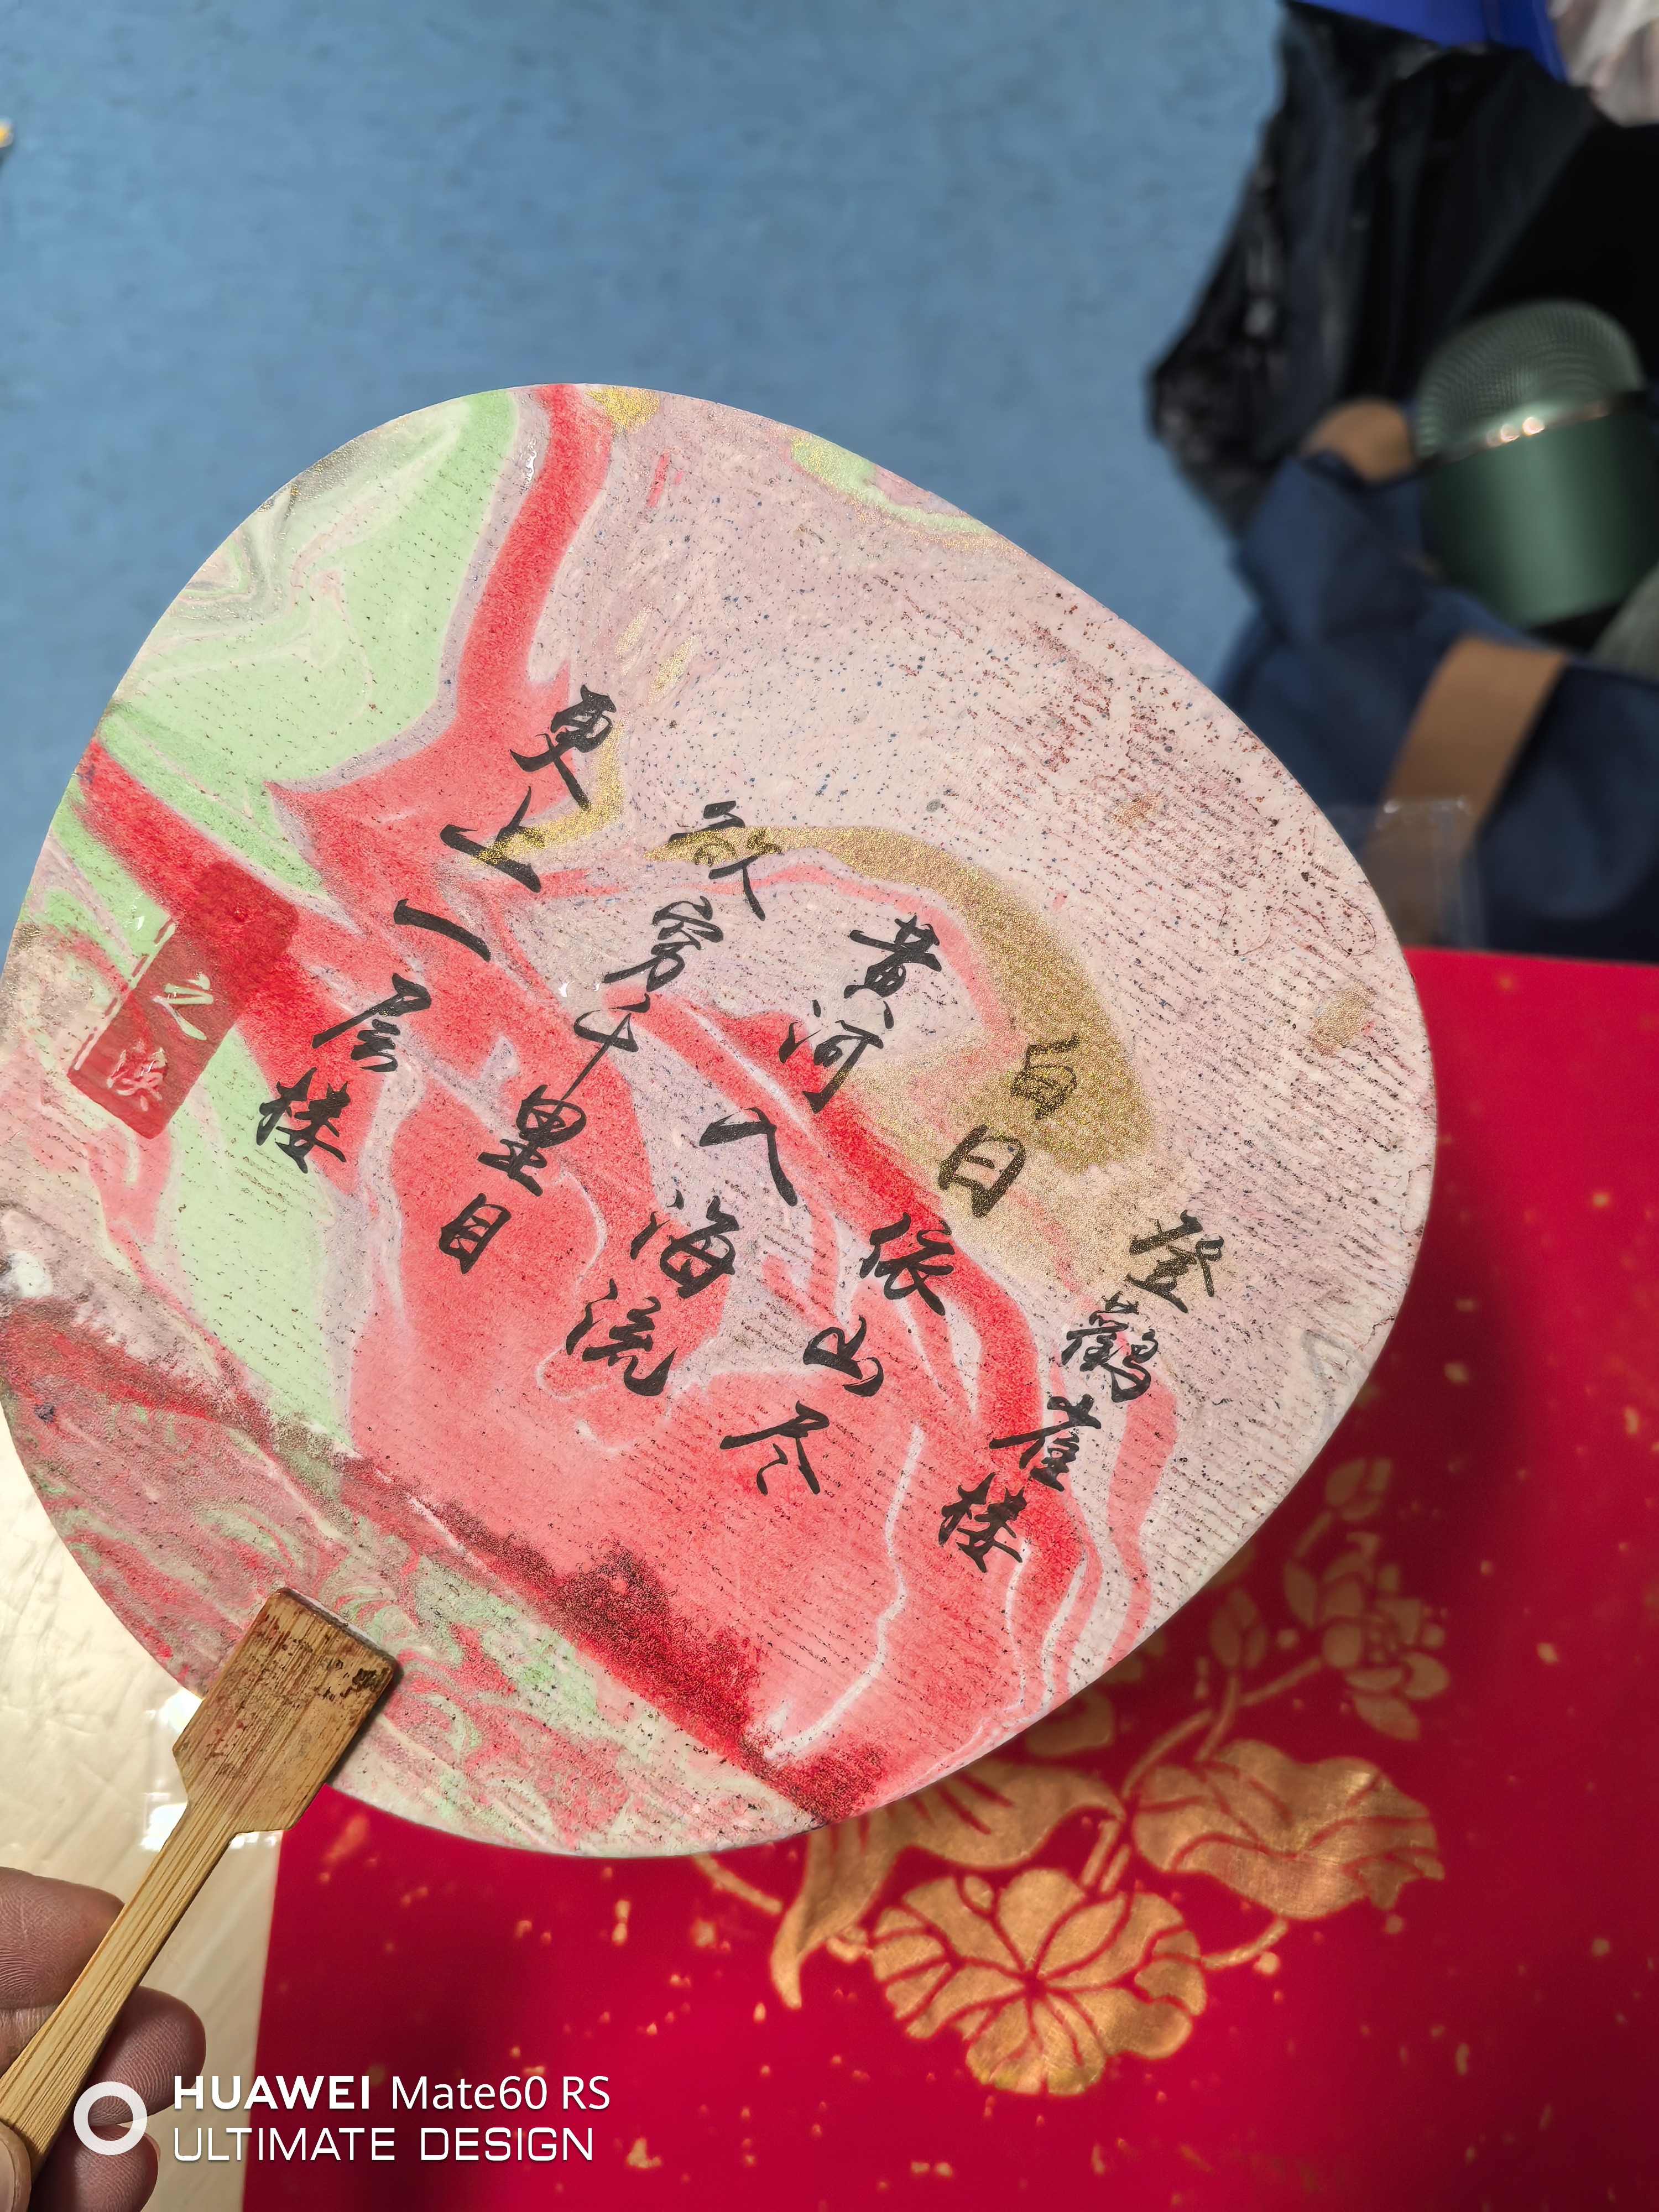 登鹳雀楼
白日依山尽
黄河入海流
欲穷千里目
更上一层楼
之涣
HUAWEI Mate60 RS
ULTIMATE DESIGN